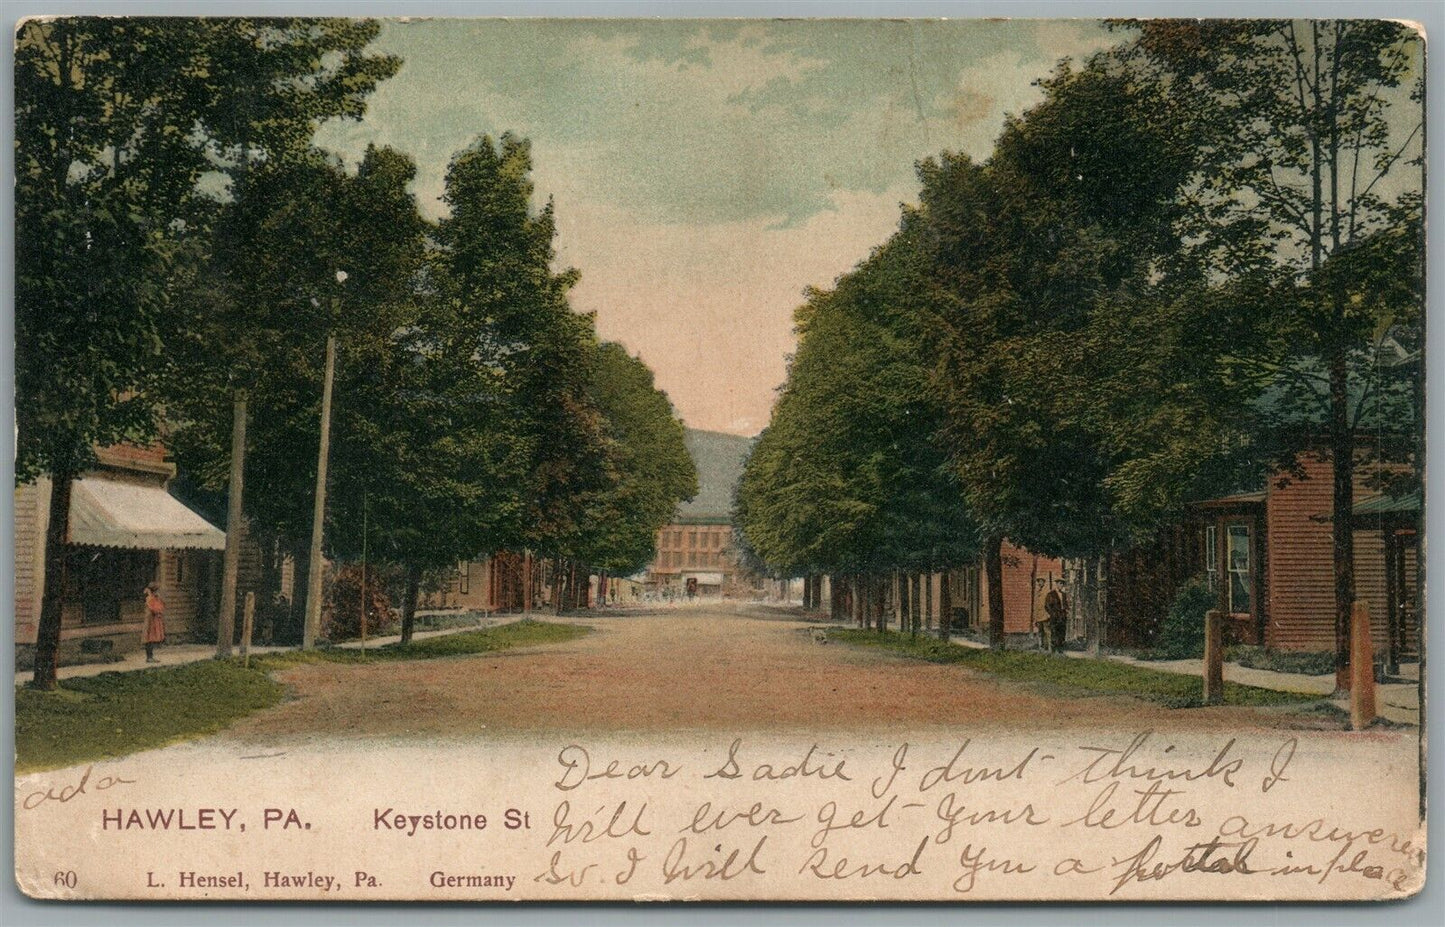 Dear Sadie I dont think I
Will ever get Your letter answered
So. I Will send You a postal in place
ada
HAWLEY, PA. Keystone St
60 L. Hensel, Hawley, Pa. Germany